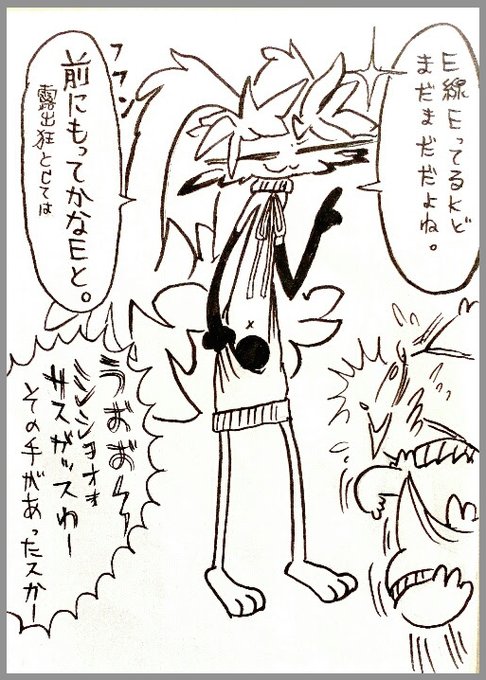 E線EってるKど
まだまだだよね。
ファン
前にもってかなEと。
露出狂とCては
うおおお
サスガッスわー
その手があったスかー